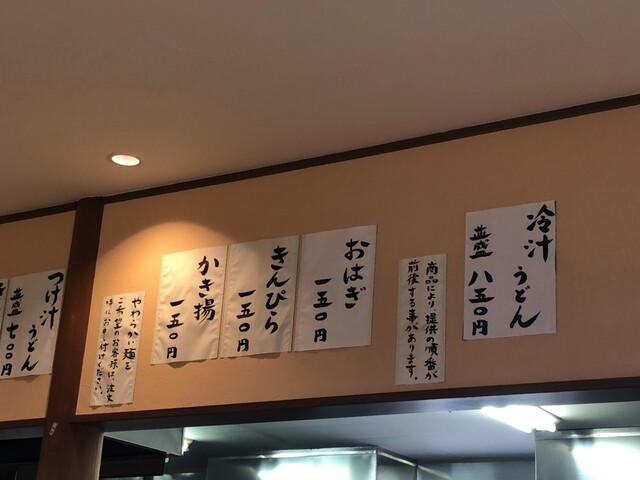 冷汁うどん
並盛 八五〇円
商品により提供の順番が
前後する事があります。
おはぎ
一五〇円
きんぴら
一五〇円
かき揚
一五〇円
やわらかい麺を
ご希望のお客様は、注文
時にお申し付けください。
つけ汁うどん
並盛 七〇〇円